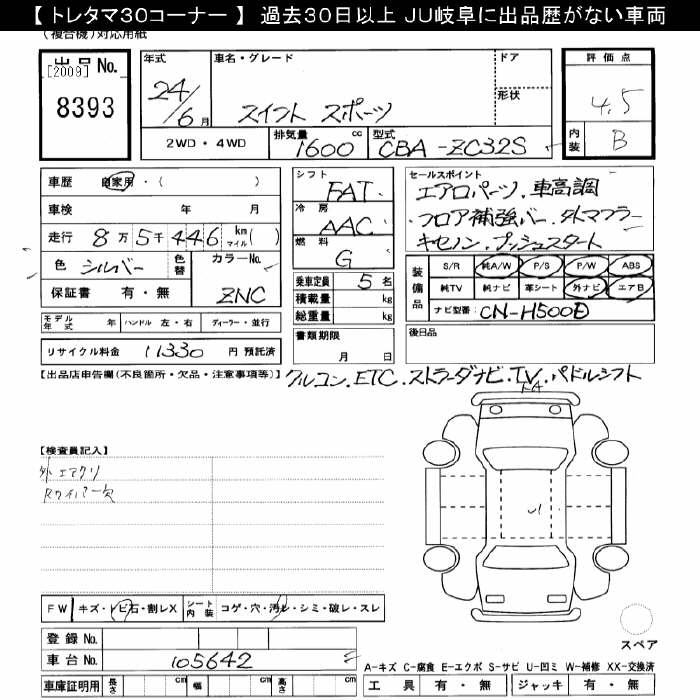 【トレタマ30コーナー】 過去30日以上 JU岐阜に出品歴がない車両
(複合機)対応用紙
出品 No. [2009]
8393
年式 24/6 月
車名・グレード スイフト スポーツ
ドア
形状
評価点 4.5
内装 B
2WD・4WD
排気量 1600 cc
型式 CBA-ZC32S
車歴 自家用・( )
車検 年 月
走行 8万5千446 km マイル( )
色 シルバー
色替
カラーNo. ZNC
保証書 有・無
モデル年式 年 ハンドル 左・右 ディーラー・並行
リサイクル料金 11330 円 預託済
シフト FAT
冷房 AAC
燃料 G
乗車定員 5 名
積載量 kg
総重量 kg
書類期限
月 日
セールスポイント
エアロパーツ、車高調
フロア補強バー、タナマフラー
キセノン、プッシュスタート
装備品
S/R 純A/W P/S P/W ABS
純TV 純ナビ 革シート 外ナビ エアB
ナビ型番: CN-H500D
後日品
【出品店申告欄(不良箇所・欠品・注意事項等)】 クルコン、ETC、ストラーダナビ、TV、パドルシフト
【検査員記入】
外 エアクリ
Rワイパー欠
FW キズ・トビ石・割レX
シート内装 コゲ・穴・汚レ・シミ・破レ・スレ
登録 No.
車台 No. 105642
車庫証明用 長さ cm 幅 cm 高さ cm
スペア
A-キズ C-腐食 E-エクボ S-サビ U-凹ミ W-補修 XX-交換済
工具 有・無 ジャッキ 有・無